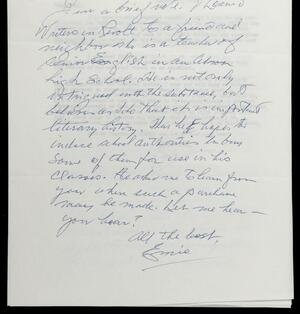 I am a brief note. I loaned
Writers in Revolt to a friend and
neighbor who is a teacher of
senior English in an Akron
high school. He is not only
intrigued with the substance, but
believes as I do that it is important
literary history. Thus he hopes to
induce school authorities to buy
some of them for use in his
classes. He asks me to learn from
you when such a purchase
may be made. Let me hear –
you hear?
All the best,
Ernie